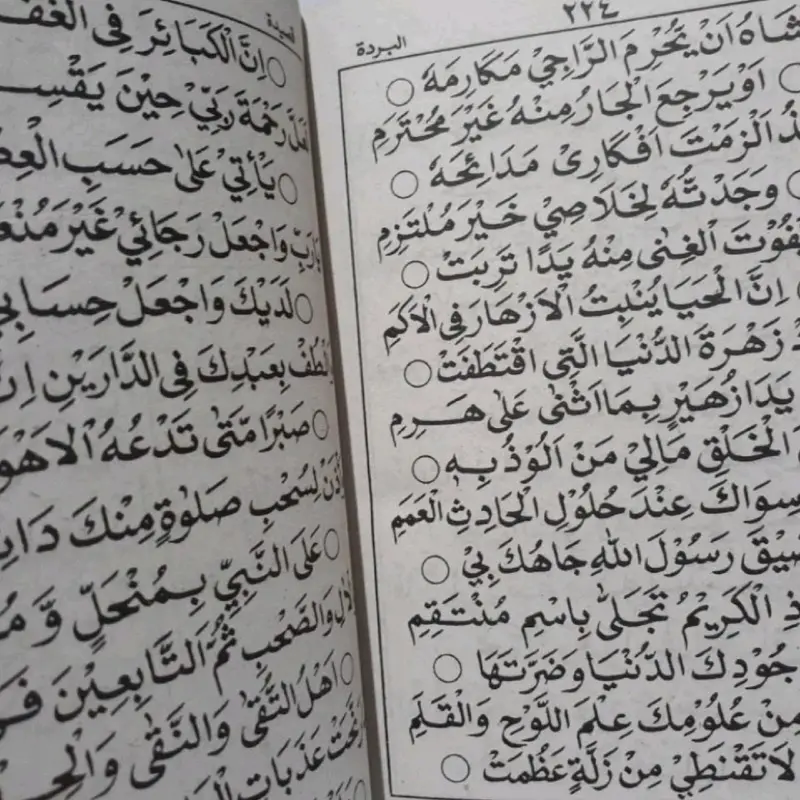 ٢٢٤ البردة
اَنْ يُحْرِمَ الرَّاجِيْ مَكَارِمَهٗ ○
اَوْ يَرْجِعَ الْجَارُ مِنْهُ غَيْرَ مُحْتَرَمِ
اَلْزَمْتُ اَفْكَارِىْ مَدَائِحَهٗ ○
وَجَدْتُّهٗ لِخَلَاصِيْ خَيْرَ مُلْتَزِمِ
الْغِنٰى مِنْهُ يَدًا تَرِبَتْ ○
اِنَّ الْحَيَا يُنْبِتُ الْاَزْهَارَ فِى الْاَكَمِ
زَهْرَةَ الدُّنْيَا الَّتِى اقْتَطَفَتْ ○
يَدَا زُهَيْرٍ بِمَا اَثْنٰى عَلٰى هَرِمِ
الْخَلْقِ مَالِيْ مَنْ اَلُوْذُ بِهٖ ○
سِوَاكَ عِنْدَ حُلُوْلِ الْحَادِثِ الْعَمَمِ
رَسُوْلَ اللهِ جَاهُكَ بِيْ ○
الْكَرِيْمُ تَجَلّٰى بِاسْمِ مُنْتَقِمِ
جُوْدِكَ الدُّنْيَا وَضَرَّتَهَا ○
مِنْ عُلُوْمِكَ عِلْمَ اللَّوْحِ وَالْقَلَمِ
لَا تَقْنَطِيْ مِنْ زَلَّةٍ عَظُمَتْ ○
البردة
○ اِنَّ الْكَبَائِرَ فِى
رَحْمَةَ رَبِّيْ حِيْنَ
○ يَأْتِيْ عَلٰى حَسَبِ
وَاجْعَلْ رَجَائِيْ غَيْرَ
○ لَدَيْكَ وَاجْعَلْ حِسَابِيْ
بِعَبْدِكَ فِى الدَّارَيْنِ
○ صَبْرًا مَّتٰى تَدْعُهُ
لِسُحْبِ صَلٰوةٍ مِنْكَ
○ عَلَى النَّبِيِّ بِمُنْهَلٍّ
وَالصَّحْبِ ثُمَّ التَّابِعِيْنَ
○ اَهْلُ التُّقٰى وَالنَّقٰى
عَذَبَاتِ